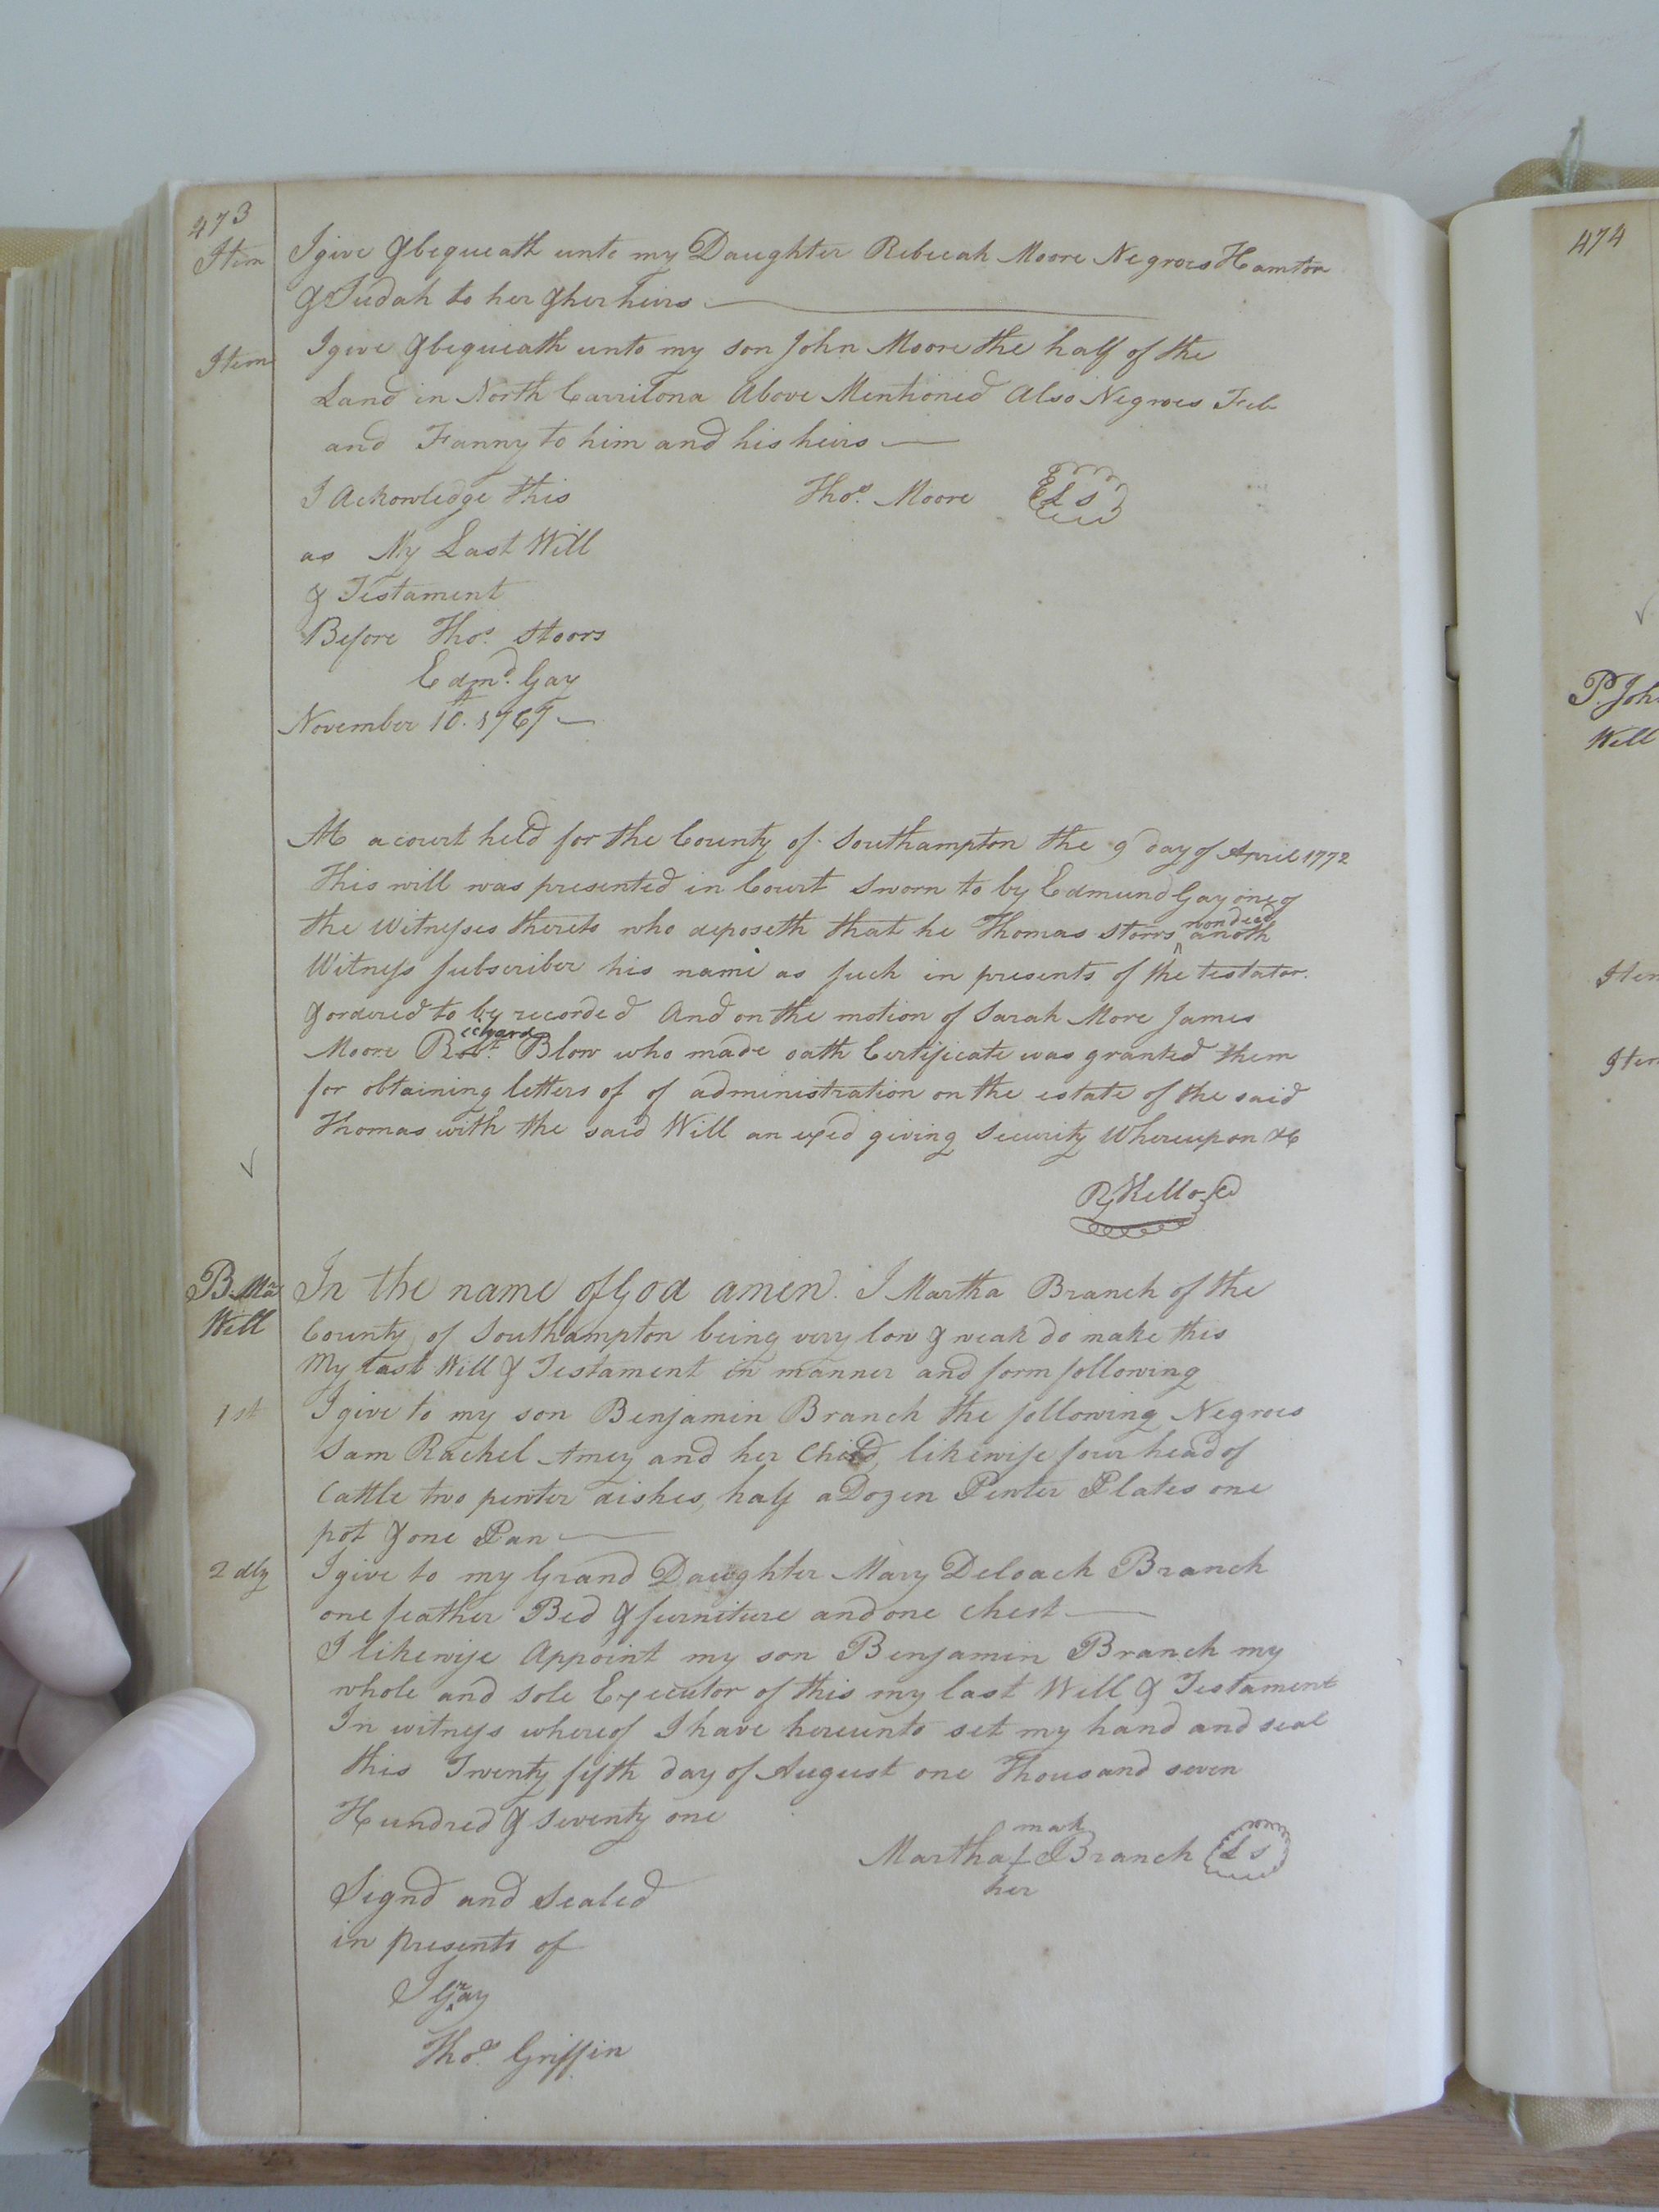 473
Item I give & bequeath unto my Daughter Rebecah Moore Negroes Hamton
& Judah to her & her heirs
Item I give & bequeath unto my son John Moore the half of the
Land in North Carrilona Above Mentioned Also Negroes Feb
and Fanny to him and his heirs
I Acknowledge this Thos. Moore LS
as My Last Will
& Testament
Before Thos. Stoors
Edmd. Gay
November 10th. 1767
At a court held for the County of Southampton the 9 day of April 1772
This will was presented in Court Sworn to by Edmund Gay one of
now dead
the Witnesses thereto who deposeth that he Thomas Storrs ^ anoth
Witness subscriber his name as such in presents of the testator.
& ordered to by recorded And on the motion of Sarah More James
ichard
Moore Robt. Blow who made oath Certificate was granted them
for obtaining letters of of administration on the estate of the said
Thomas with the said Will an exed giving Security Whereupon &c
Ry Kello
B. Ma In the name of God amen. I Martha Branch of the
Will County of Southampton being very low & weak do make this
My last Will & Testament in manner and form following
1st I give to my son Benjamin Branch the following Negroes
Sam Rachel Amey and her Child, likewise four head of
Cattle two pewter dishes, half a Dozen Pewter Plates one
pot & one Pan
2dly I give to my Grand Daughter Mary Deloach Branch
one feather Bed & furniture and one chest
I likewise Appoint my son Benjamin Branch my
whole and sole Executor of this my last Will & Testament
In witness whereof I have hereunto set my hand and seal
this Twenty fifth day of August one Thousand seven
Hundred & Seventy one
mark
Martha Branch LS
her
Signd and Sealed
in presents of
J Gray
Thos. Griffin
474
P. Joh
Will
Item
Item